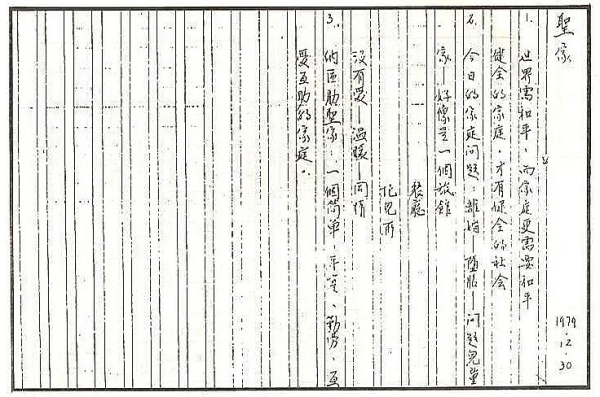 聖家
1979.12.30
1. 世界需和平,而家庭更需要和平
健全的家庭,才有健全的社会
2. 今日的家庭问题:離婚—堕胎—问题兒童
家—好像是一個旅館
餐廳
托兒所
没有爱—温暖—同情
3. 納匝肋聖家,一個简单、平安、勤劳、互
爱互助的家庭。